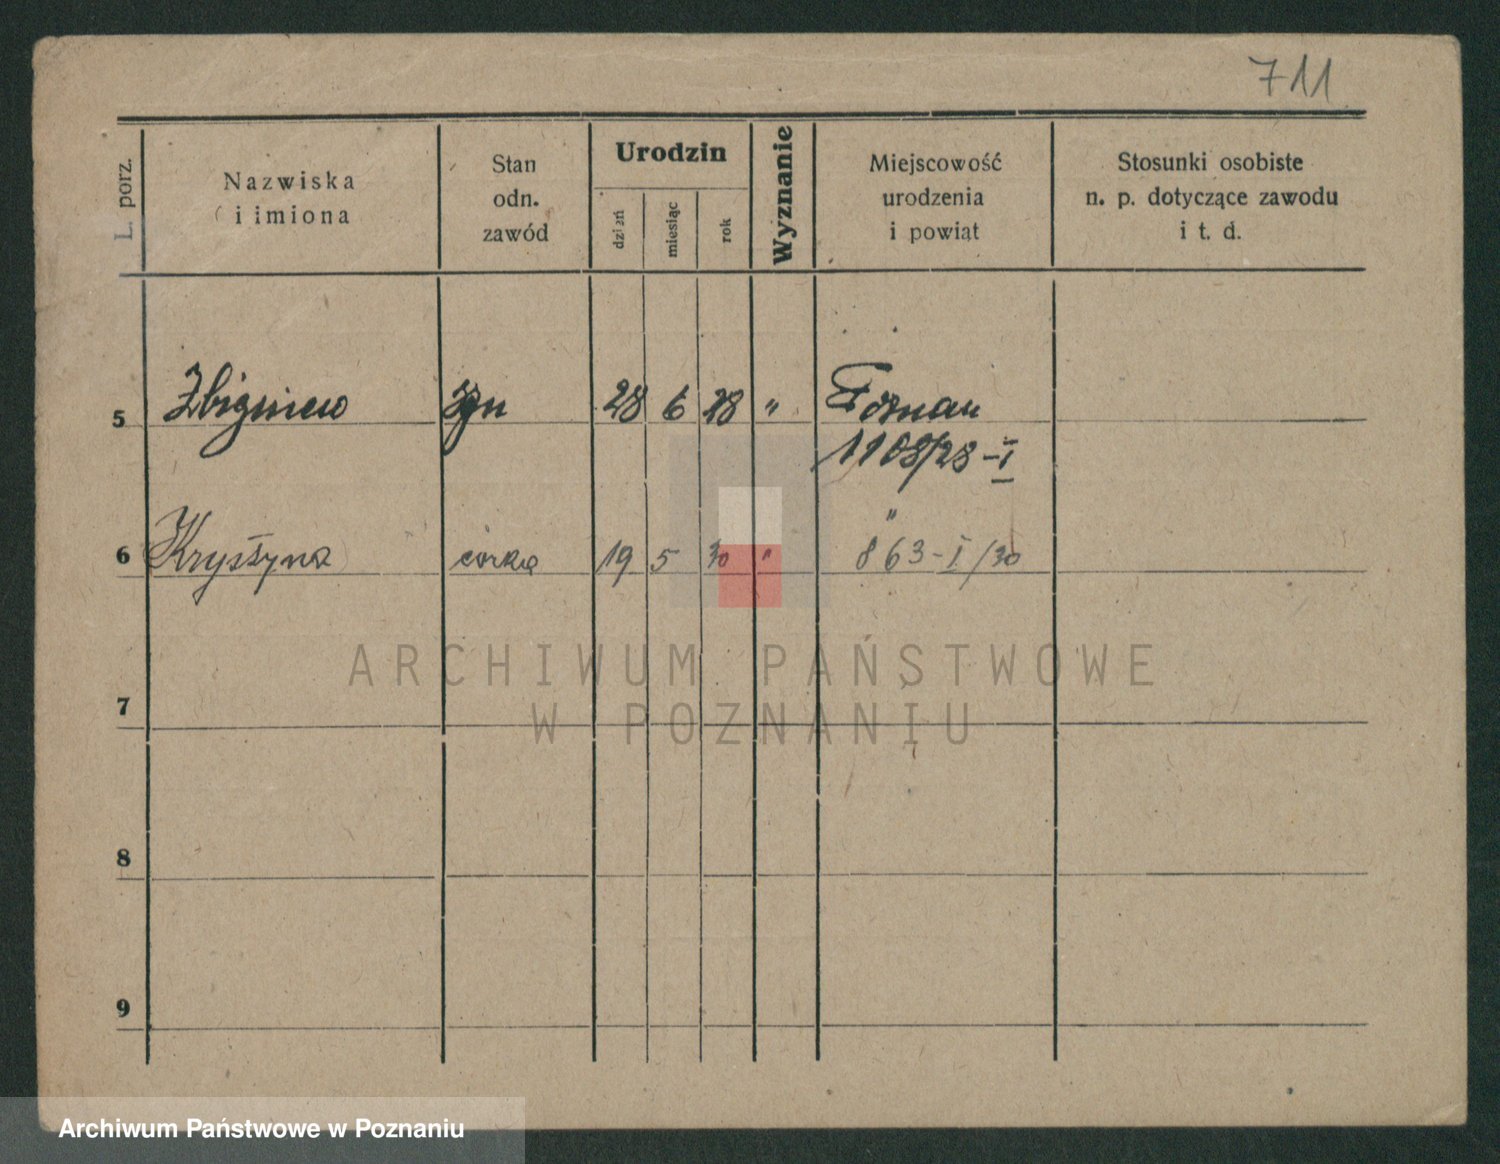 711
L. porz.
Nazwiska
i imiona
Stan
odn.
zawód
Urodzin
dzień
miesiąc
rok
Wyznanie
Miejscowość
urodzenia
i powiąt
Stosunki osobiste
n. p. dotyczące zawodu
i t. d.
5 Zbigniew syn 28 6 28 " Poznań
1108/28-I
"
6 Krystyna córka 19 5 30 " 863-I/30
7
8
9
ARCHIWUM PAŃSTWOWE
W POZNANIU
Archiwum Państwowe w Poznaniu